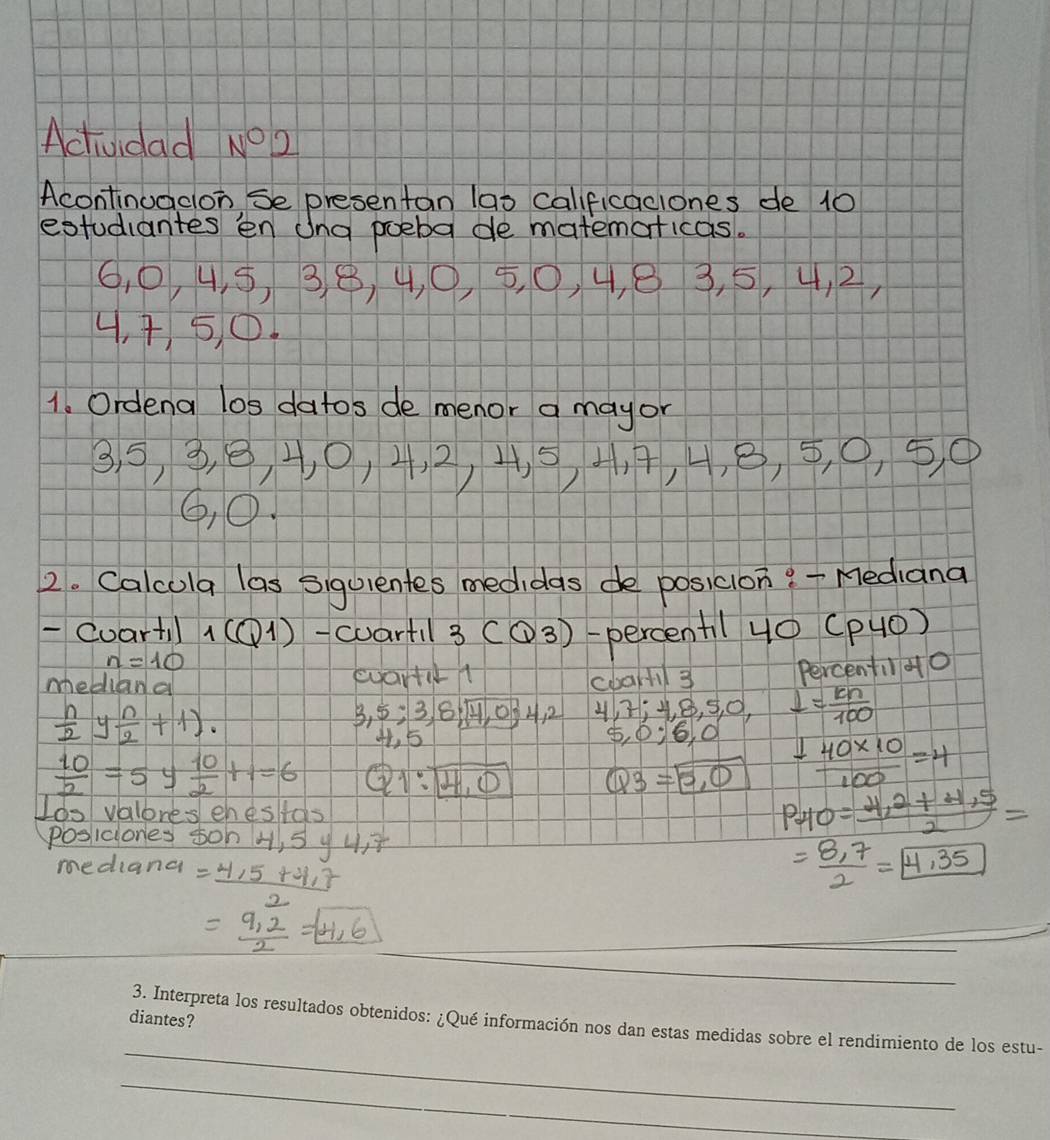 Actividad Nº2
Acontinuacion se presentan las calificaciones de 10
estudiantes en una prueba de matematicas.
6,0, 4,5, 3,8, 4,0, 5,0, 4,8 3,5, 4,2,
4,7, 5,0.
1. Ordena los datos de menor a mayor
3,5, 3,8, 4,0, 4,2, 4,5, 4,7, 4,8, 5,0, 5,0
6,0.
2. Calcula las siguientes medidas de posicion: - Mediana
- Cuartil 1 (Q1) - cuartil 3 (Q3) - percentil 40 (p40)
n=10
mediana
n/2 y n/2 + 1).
10/2 = 5 y 10/2 + 1 = 6
Los valores en estas
posiciones son 4,5 y 4,7
mediana = 4,5 + 4,7 / 2
= 9,2 / 2 = 4,6
cuartil 1
3,5; 3,8; 4,0; 4,2
4,5
Q1: 4,0
cuartil 3
4,7; 4,8, 5,0,
5,0; 6,0
Q3 = 5,0
Percentil 40
I = kn/100
I 40×10/100 = 4
P40 = 4,2 + 4,5 / 2 =
= 8,7 / 2 = 4.35
3. Interpreta los resultados obtenidos: ¿Qué información nos dan estas medidas sobre el rendimiento de los estu-
diantes?